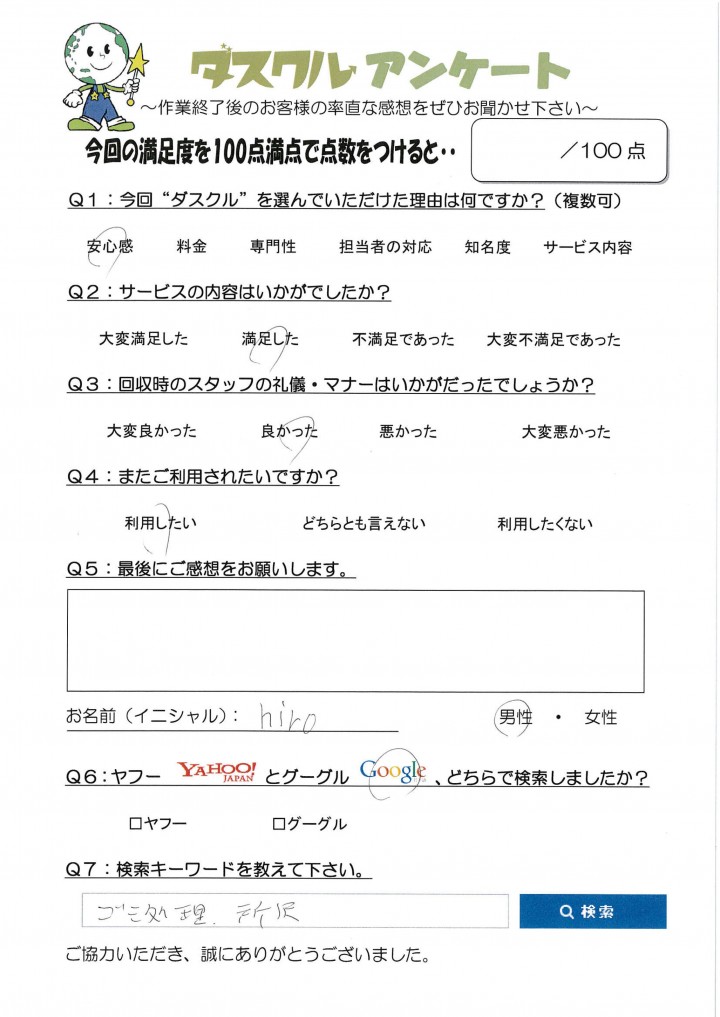 ダスクル アンケート
～作業終了後のお客様の率直な感想をぜひお聞かせ下さい～
今回の満足度を100点満点で点数をつけると‥ ／100 点
Q1：今回“ダスクル”を選んでいただけた理由は何ですか？（複数可）
安心感 料金 専門性 担当者の対応 知名度 サービス内容
Q2：サービスの内容はいかがでしたか？
大変満足した 満足した 不満足であった 大変不満足であった
Q3：回収時のスタッフの礼儀・マナーはいかがだったでしょうか？
大変良かった 良かった 悪かった 大変悪かった
Q4：またご利用されたいですか？
利用したい どちらとも言えない 利用したくない
Q5：最後にご感想をお願いします。
お名前（イニシャル）： hiro 男性 ・ 女性
Q6：ヤフー YAHOO! JAPAN とグーグル Google 、どちらで検索しましたか？
□ヤフー □グーグル
Q7：検索キーワードを教えて下さい。
ゴミ処理. 所沢 検索
ご協力いただき、誠にありがとうございました。